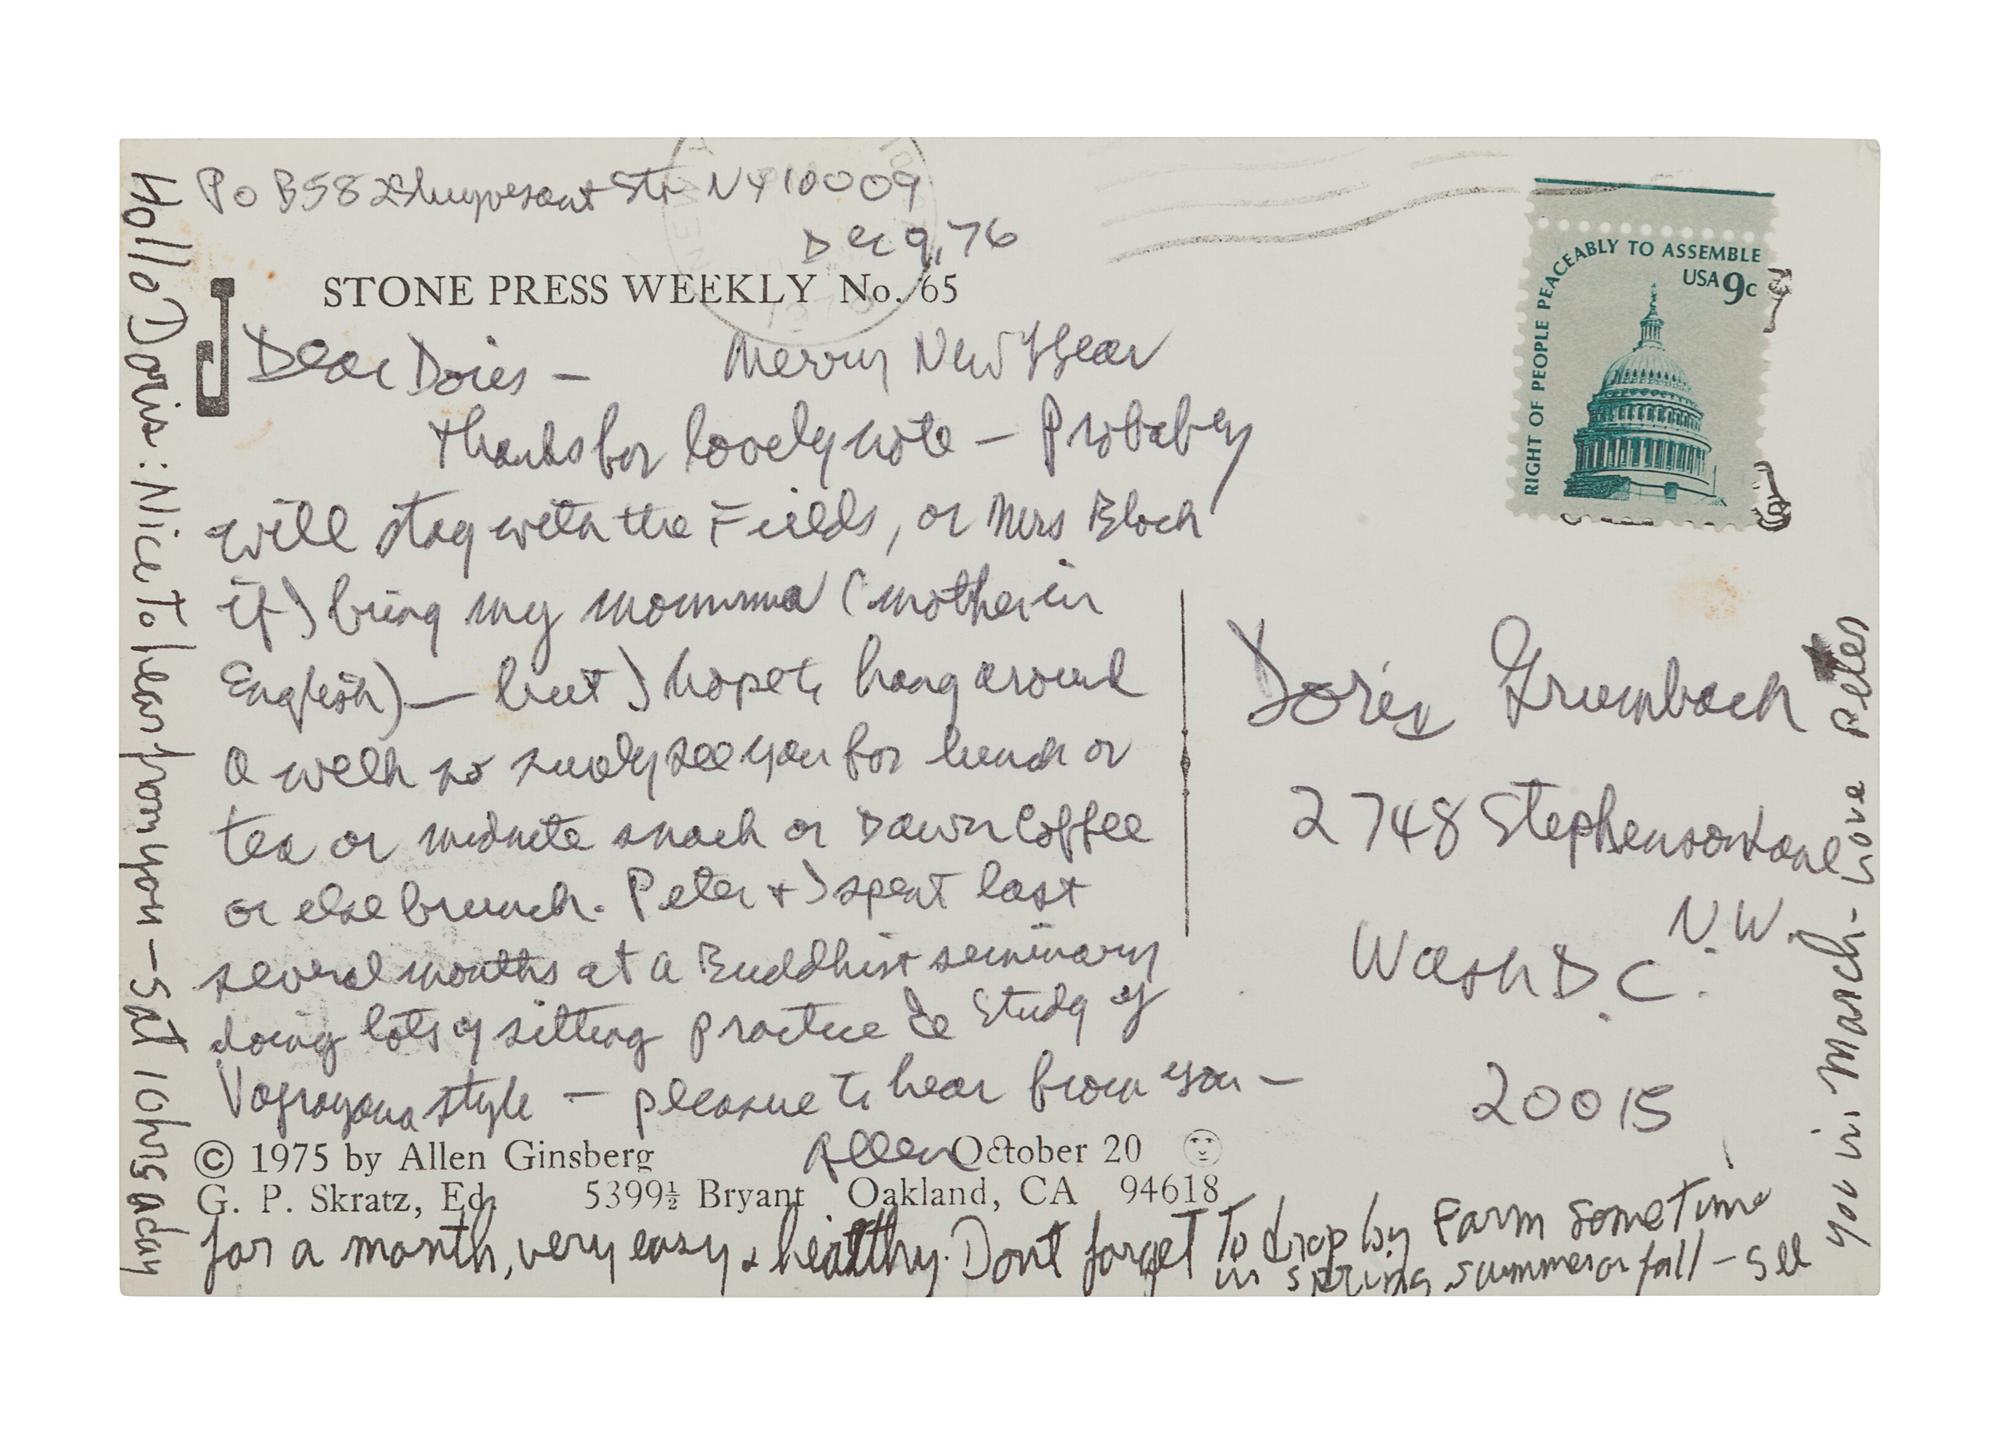 PO B 582 Stuyvesant Sta NY 10009
Dec 9, 76
STONE PRESS WEEKLY No. 65
Dear Doris — Merry New Year
thanks for lovely note — Probably
will stay with the Fields, or Mrs Bloch
if I bring my momma (mother in
English) — but I hope to hang around
a week so surely see you for lunch or
tea or midnite snack or Dawn Coffee
or else brunch. Peter + I spent last
several months at a Buddhist seminary
doing lots of sitting practice & Study of
Vajrayana style — pleasure to hear from you —
Allen
© 1975 by Allen Ginsberg October 20
G. P. Skratz, Ed. 5399½ Bryant Oakland, CA 94618
Hollo Doris: Nice To hear from you — Sat 10 hrs a day
for a month, very easy & healthy. Dont forget To drop by Farm sometime
in spring, summer or fall — see
you in March — Love Peter
RIGHT OF PEOPLE PEACEABLY TO ASSEMBLE
USA 9c
Doris Grumbach
2748 Stephenson Lane
N.W.
Wash D.C.
20015